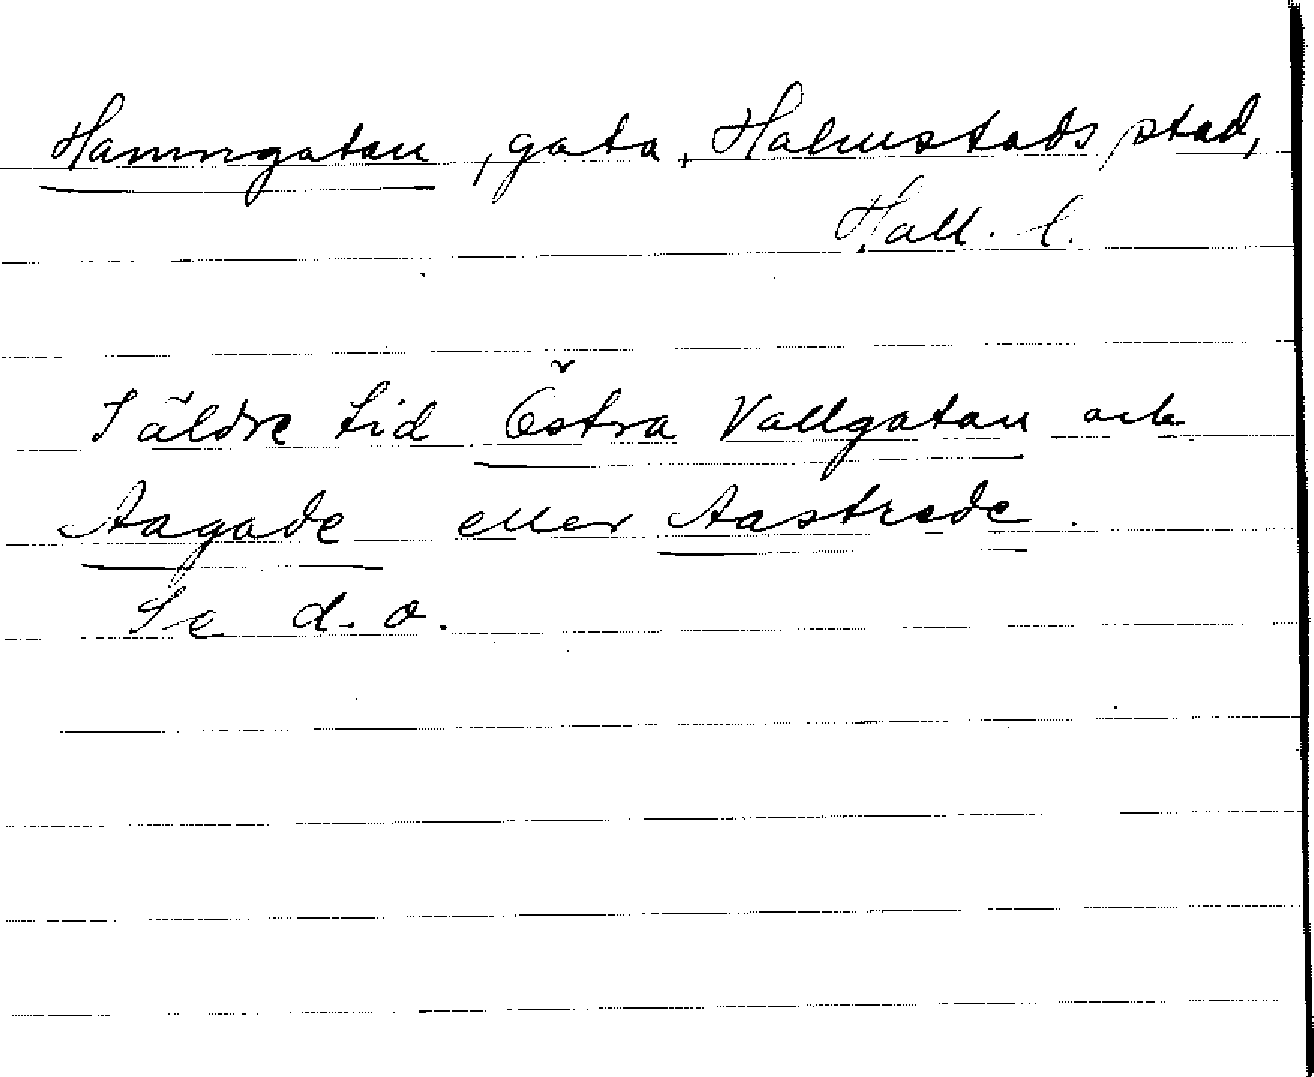 Hamngatan, gata, Halmstads stad,
Hall. l.
I äldre tid Östra Vallgatan och
Aagade eller Aastræde.
Se d. o.